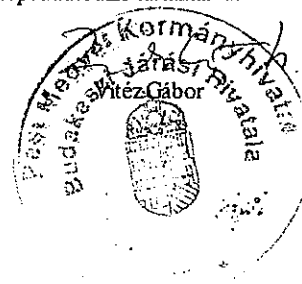 Pest Megyei Kormányhivatal
Budakeszi Járási Hivatala
Vitéz Gábor